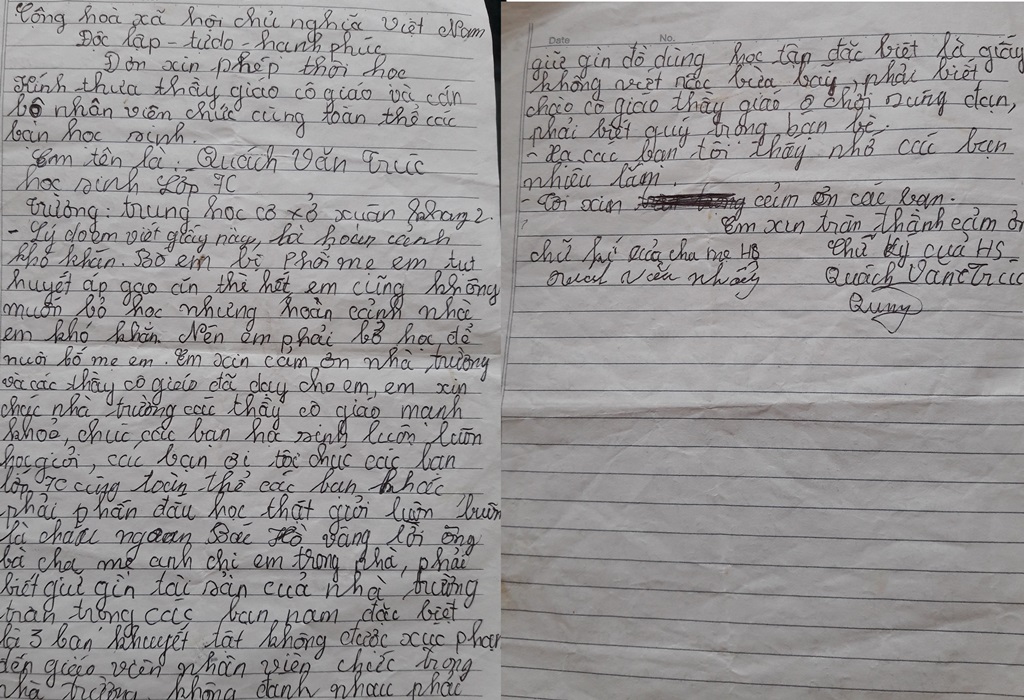 Cộng hoà xã hội chủ nghĩa Việt Nam
Độc lập - tự do - hanh phúc
Đơn xin phép thôi học
Kính thưa thầy giao cô giao và cán
bộ nhân viên chức cùng toàn thể các
bàn học sinh.
Em tên là. Quách Văn Trúc
học sinh Lớp 7C
Trường: trung học cơ xở xuân khang 2
- Lý do em viết giấy này, là hoàn cảnh
khó khăn. Bố em bị phổi mẹ em tụt
huyết áp gạo ăn thề hết em cũng không
muốn bỏ học nhưng hoàn cảnh nhà
em khó khăn. Nên em phải bỏ học để
nuôi bố mẹ em. Em xin cảm ơn nhà trường
và các thầy cô giáo đã dạy cho em, em xin
chúc nhà trường các thầy cô giao mạnh
khoẻ, chúc các bạn học sinh luôn luôn
học giỏi, các bạn ơi tôi chúc các bạn
lớp 7C cùng toàn thể các bạn khác
phải phấn đâu học thật giỏi luôn luôn
là cháu ngoan Bác Hồ vâng lời ông
bà cha mẹ anh chi em trong nhà, phải
biết giữ gìn tài sản của nhà trường
trân trọng các bạn nam đặc biệt
là 3 ban khuyết tât không được xúc phạm
đến giáo viên nhân viên chức trong
nhà trường không đanh nhau phải
Date No.
giữ gìn đồ dùng học tập đặc biệt là giấy
không viết bừa bãy, phải biết
chào cô giao thầy giáo ở chời súng đạn,
phải biết quý trọng bán bè.
- Xa các bạn tôi thấy nhớ các bạn
nhiều lắm.
- Tôi xin cảm ơn các bạn.
Em xin trân thành cảm ơn
chữ kí của cha mẹ HS Chữ ký cuả HS
Quách Văn Trúc